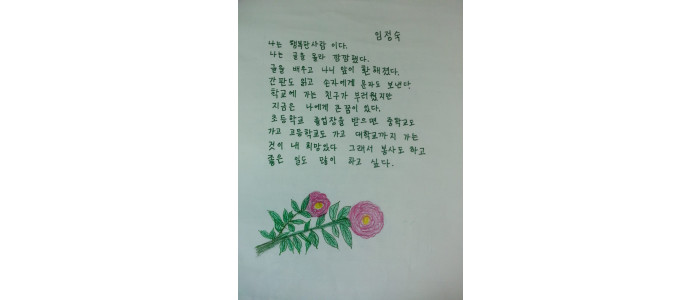 임정숙
나는 행복한사람 이다.
나는 글을 몰라 깜깜했다.
글을 배우고 나니 앞이 환해졌다.
간판도 읽고 손자에게 문자도 보낸다.
학교에 가는 친구가 부러웠지만
지금은 나에게 큰꿈이 있다.
초등학교 졸업장을 받으면 중학교도
가고 고등학교도 가고 대학교까지 가는
것이 내 희망있다 그래서 봉사도 하고
좋은 일도 많이 하고 싶다.